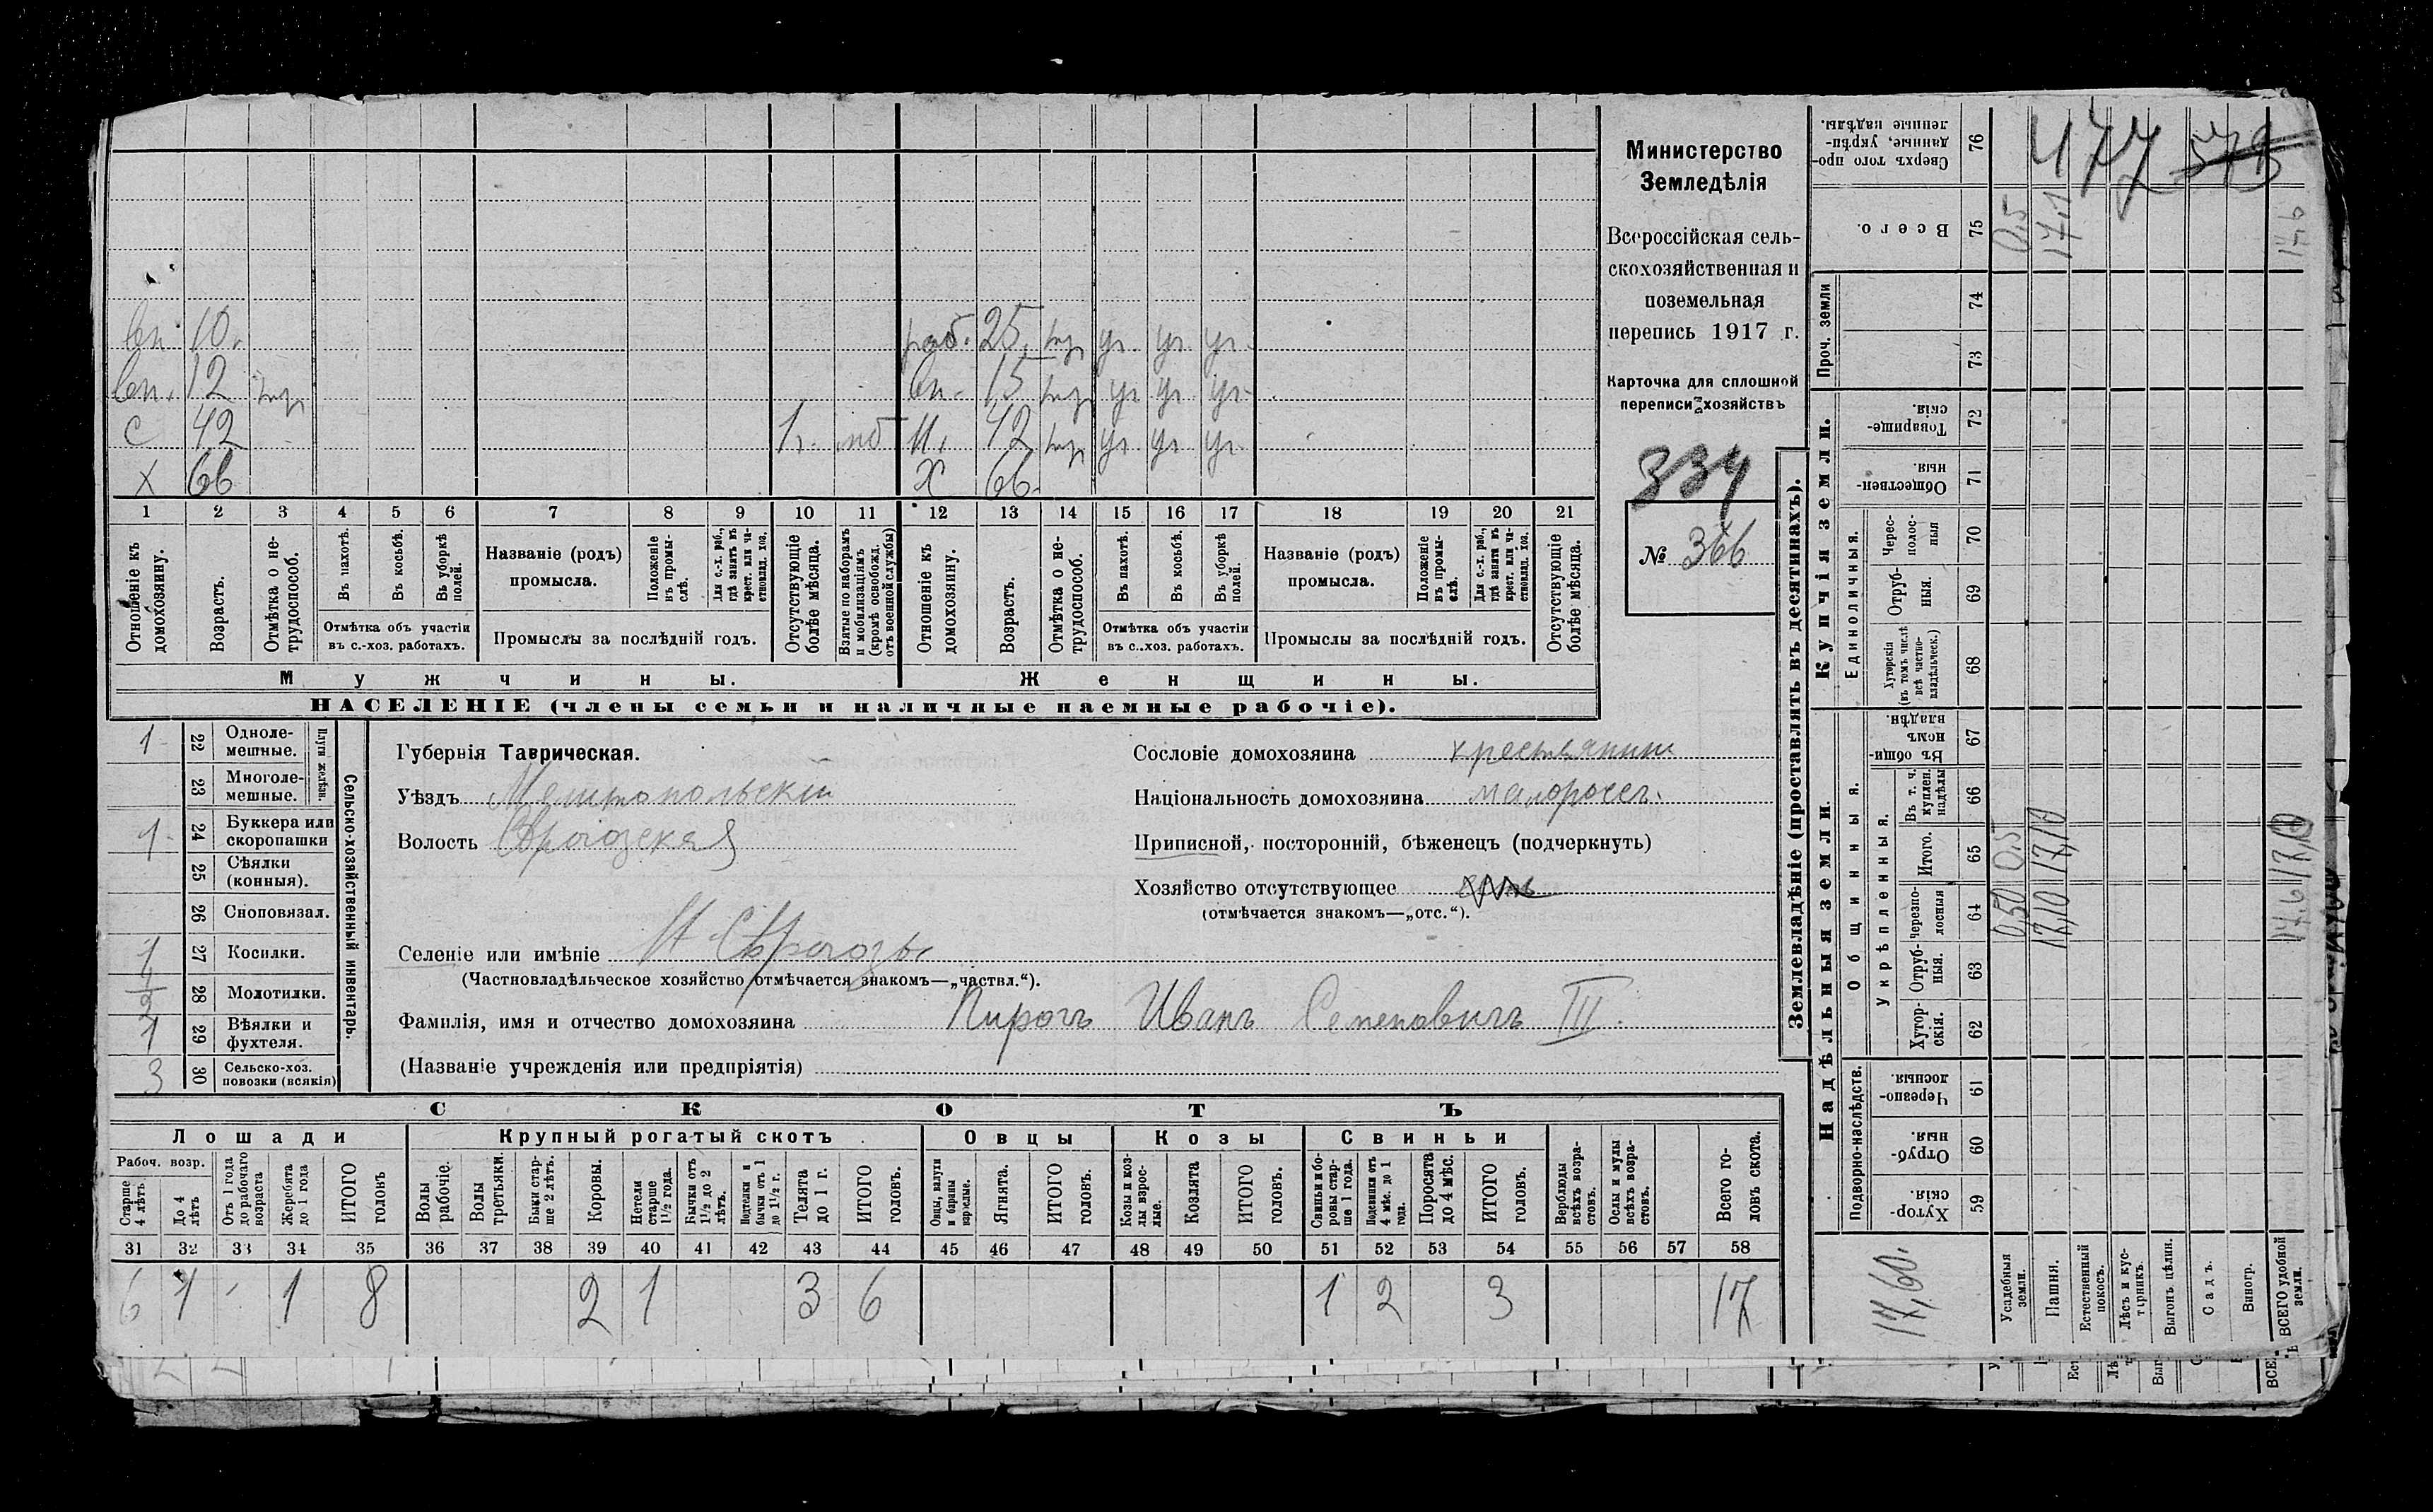 вн. 10. раб. 25.
вн. 12 вн. 15
с 42 1г. мб н. 42
х 66 х 66.
1 2 3 4 5 6 7 8 9 10 11 12 13 14 15 16 17 18 19 20 21
Отношеніе къ домохозяину.
Возрастъ.
Отмѣтка о не-трудоспособ.
Въ пахотѣ.
Въ косьбѣ.
Въ уборкѣ полей.
Отмѣтка объ участіи
въ с.-хоз. работахъ.
Названіе (родъ)
промысла.
Положеніе въ промы-слѣ.
Для с.-х. раб., гдѣ занятъ въ крест. или ча-стновлад. хоз.
Промыслы за послѣдній годъ.
Отсутствующіе болѣе мѣсяца.
Взятые по наборамъ и мобилизаціямъ (кромѣ освобожд. отъ военной службы)
Отношеніе къ домохозяину.
Возрастъ.
Отмѣтка о не-трудоспособ.
Въ пахотѣ.
Въ косьбѣ.
Въ уборкѣ полей.
Отмѣтка объ участіи
въ с.-хоз. работахъ.
Названіе (родъ)
промысла.
Положеніе въ промы-слѣ.
Для с.-х. раб., гдѣ занятъ въ крест. или ча-стновлад. хоз.
Промыслы за послѣдній годъ.
Отсутствующіе болѣе мѣсяца.
Мужчины. Женщины.
НАСЕЛЕНІЕ (члены семьи и наличные наемные рабочіе).
Министерство
Земледѣлія
Всероссійская сель-
скохозяйственная и
поземельная
перепись 1917 г.
Карточка для сплошной
переписи хозяйствъ
334
№ 366
1 22 Одноле-
мешные.
23 Многоле-
мешные.
Плуги желѣзн.
1 24 Буккера или
скоропашки
25 Сѣялки
(конныя).
26 Сноповязал.
1 27 Косилки.
28 Молотилки.
1 29 Вѣялки и
фухтеля.
3 30 Сельско-хоз.
повозки (всякія)
Сельско-хозяйственный инвентарь.
Губернія Таврическая.
Уѣздъ Мелитопольскій
Волость
Селеніе или имѣніе
(Частновладѣльческое хозяйство отмѣчается знакомъ—„частвл.“).
Фамилія, имя и отчество домохозяина Пирогъ Иванъ Семеновичъ III.
(Названіе учрежденія или предпріятія)
Сословіе домохозяина крестьянинъ
Національность домохозяина малороссъ.
Приписной, посторонній, бѣженецъ (подчеркнуть)
Хозяйство отсутствующее
(отмѣчается знакомъ—„отс.“).
СКОТЪ
Лошади Крупный рогатый скотъ Овцы Козы Свиньи
Рабоч. возр.
Старше 4 лѣтъ
До 4 лѣтъ
Отъ 1 года до рабочаго возраста
Жеребята до 1 года
ИТОГО головъ
Волы рабочіе.
Волы третьяки.
Быки стар-ше 2 лѣтъ.
Коровы.
Нетели старше 1½ года.
Бычки отъ 1½ до 2 лѣтъ.
Подтелки и бычки отъ 1 до 1½ г.
Телята до 1 г.
ИТОГО головъ.
Овцы, валухи и бараны взрослые.
Ягнята.
ИТОГО головъ.
Козы и коз-лы взрос-лые.
Козлята
ИТОГО головъ.
Свиньи и бо-ровы стар-ше 1 года.
Подсвинки отъ 4 мѣс. до 1 года.
Поросята до 4 мѣс.
ИТОГО головъ.
Верблюды всѣхъ возра-стовъ.
Ослы и мулы всѣхъ возра-стовъ.
Всего го-ловъ скота.
31 32 33 34 35 36 37 38 39 40 41 42 43 44 45 46 47 48 49 50 51 52 53 54 55 56 57 58
6 1 1 8 2 1 3 6 1 2 3 17
Землевладѣніе (проставлять въ десятинахъ).
477 573
Сверхъ того про-данные, укрѣп-ленные надѣлы. 76
Всего. 75 0,5 17,1 17,6
Проч. земли
74
73
Купчія земли.
Товарище-скія. 72
Обществен-ныя. 71
Единоличныя.
Черес-полос-ныя 70
Отруб-ныя. 69
Хуторскія (въ томъ числѣ всѣ частно-владѣльческ.) 68
Надѣльныя земли.
Общинныя.
Въ общи-номъ владѣн. 67
Укрѣпленныя.
Въ т. ч. куплен. надѣлы 66
Итого. 65 0,5 17,10 17,10
Черезпо-лосныя 64 0,50 17,10 17,6
Отруб-ныя. 63
Хутор-скія. 62
Подворно-наслѣдств.
Черезпо-лосныя 61
Отруб-ныя. 60
Хутор-скія. 59
17,60.
Усадебныя земли.
Пашня.
Естественный покосъ.
Лѣсъ и кус-тарникъ.
Выгонъ цѣлин.
Садъ.
Виногр.
ВСЕГО удобной земли.